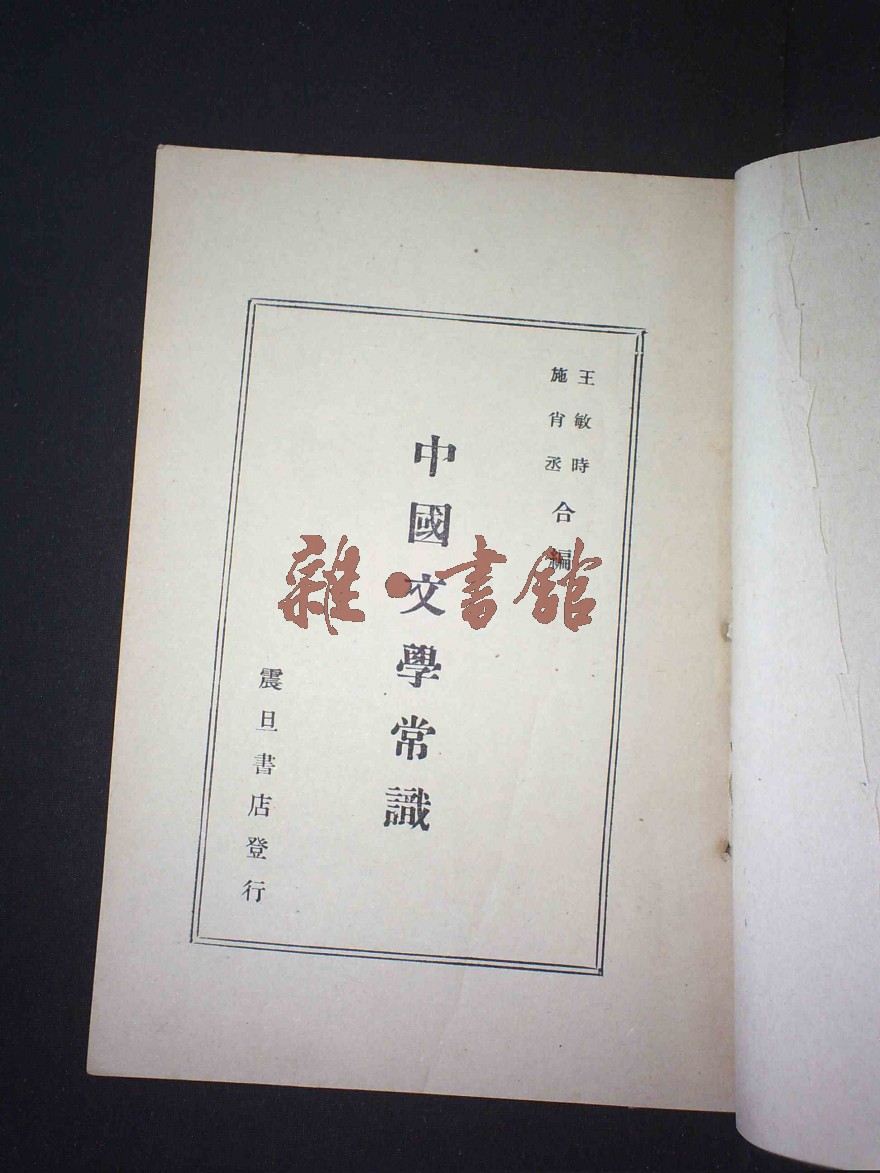 王敏時
施肖丞
合編
中國文學常識
震旦書店登行
雜·書館